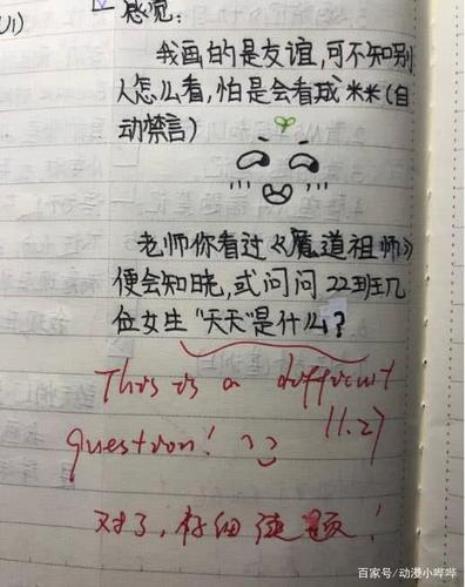 感觉：
我画的是友谊,可不知别
人怎么看,怕是会看成米米(自
动禁言)
老师你看过《魔道祖师》
便会知晓,或问问22班几
位女生"天天"是什么?
This is a difficult
question!
11.27
对了,仔细读题!
百家号/动漫小哔哔